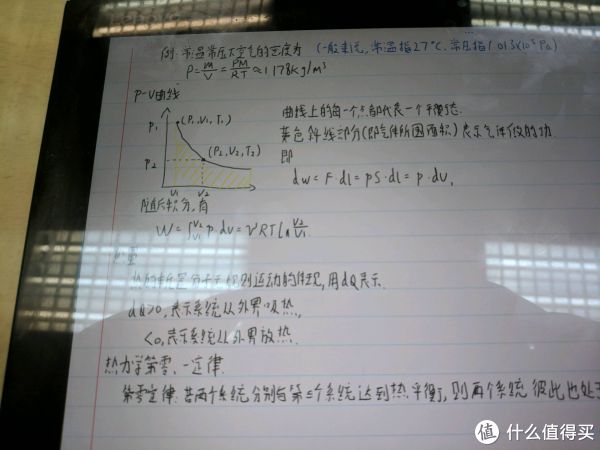 例:常温常压下空气的密度为 (一般来说,常温指27°C.常压指1.013×10⁵Pa)
ρ=m/V=PM/RT≈1.178kg/m³
P-V曲线
P₁ (P₁,V₁,T₁)
P₂ (P₂,V₂,T₂)
V₁ V₂
曲线上的每一个点都代表一个平衡态.
黄色斜线部分(即气体所围面积)表示气体做的功.
即
dw=F·dl=PS·dl=P·dV,
随后积分,有
W=∫V₁V₂ P·dV=νRTln V₂/V₁.
热量
热的本质是分子无规则运动的体现,用dQ表示.
dQ>0,表示系统从外界吸热,
<0,表示系统从外界放热.
热力学第零、一定律.
第零定律:若两个系统分别与第三个系统达到热平衡,则两个系统彼此也处于
值 什么值得买